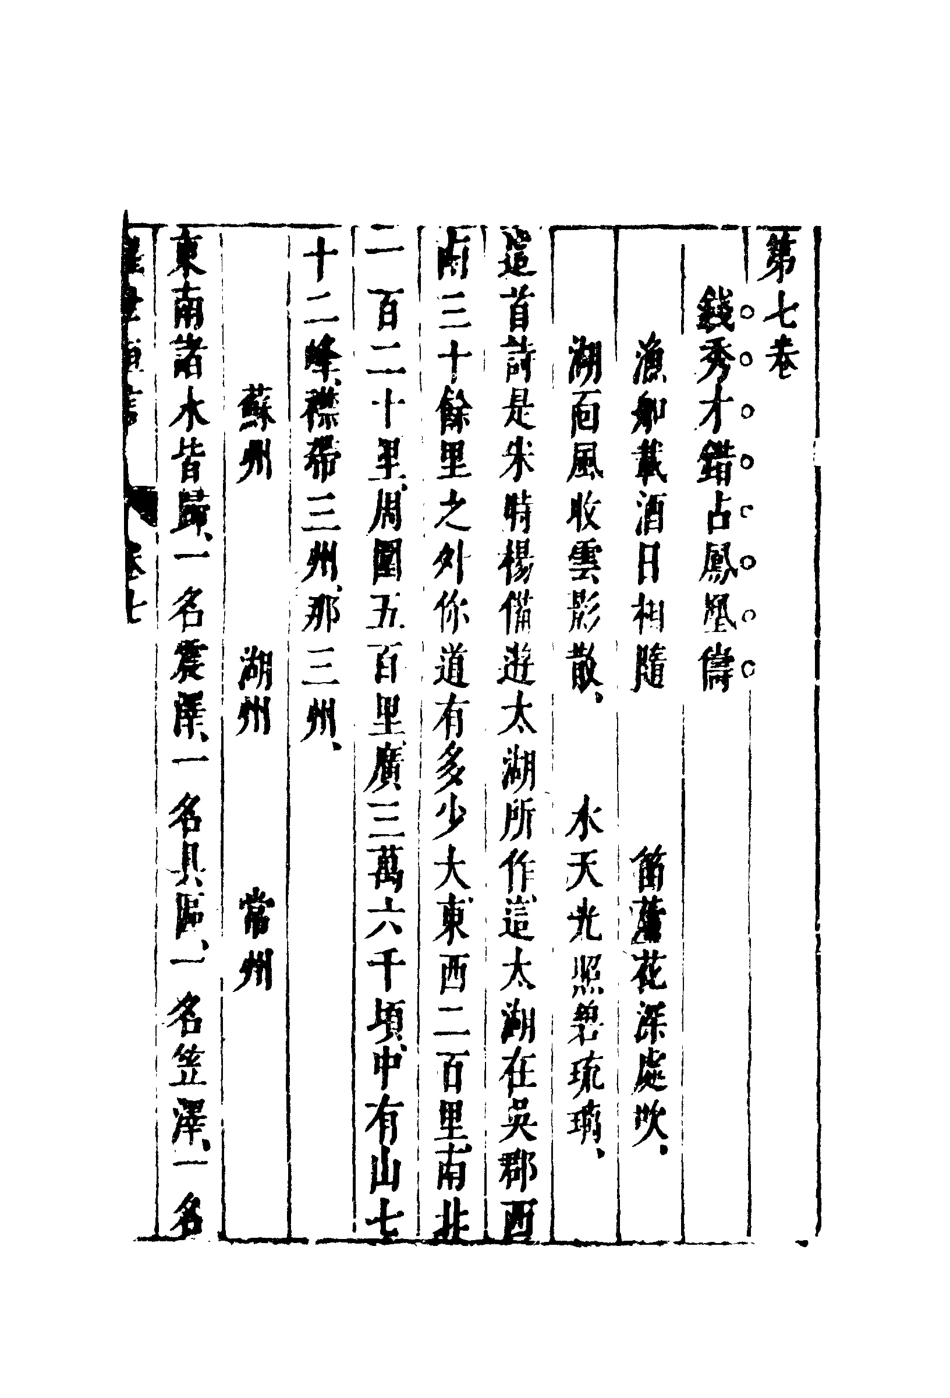 第七卷
錢秀才錯占鳳凰儔
漁船載酒日相隨　笛蘆花深處吹、
湖面風收雲影散、水天光照碧琉璃、
這首詩是宋時楊備遊太湖所作、這太湖在吳郡西
南三十餘里之外你道有多少大東西二百里、南北
一百二十里、周圍五百里、廣三萬六千頃、中有山七
十二峰、襟帶三州、那三州、
蘇州　湖州　常州
東南諸水皆歸、一名震澤、一名具區、一名笠澤、一名
醒世恒言　卷七